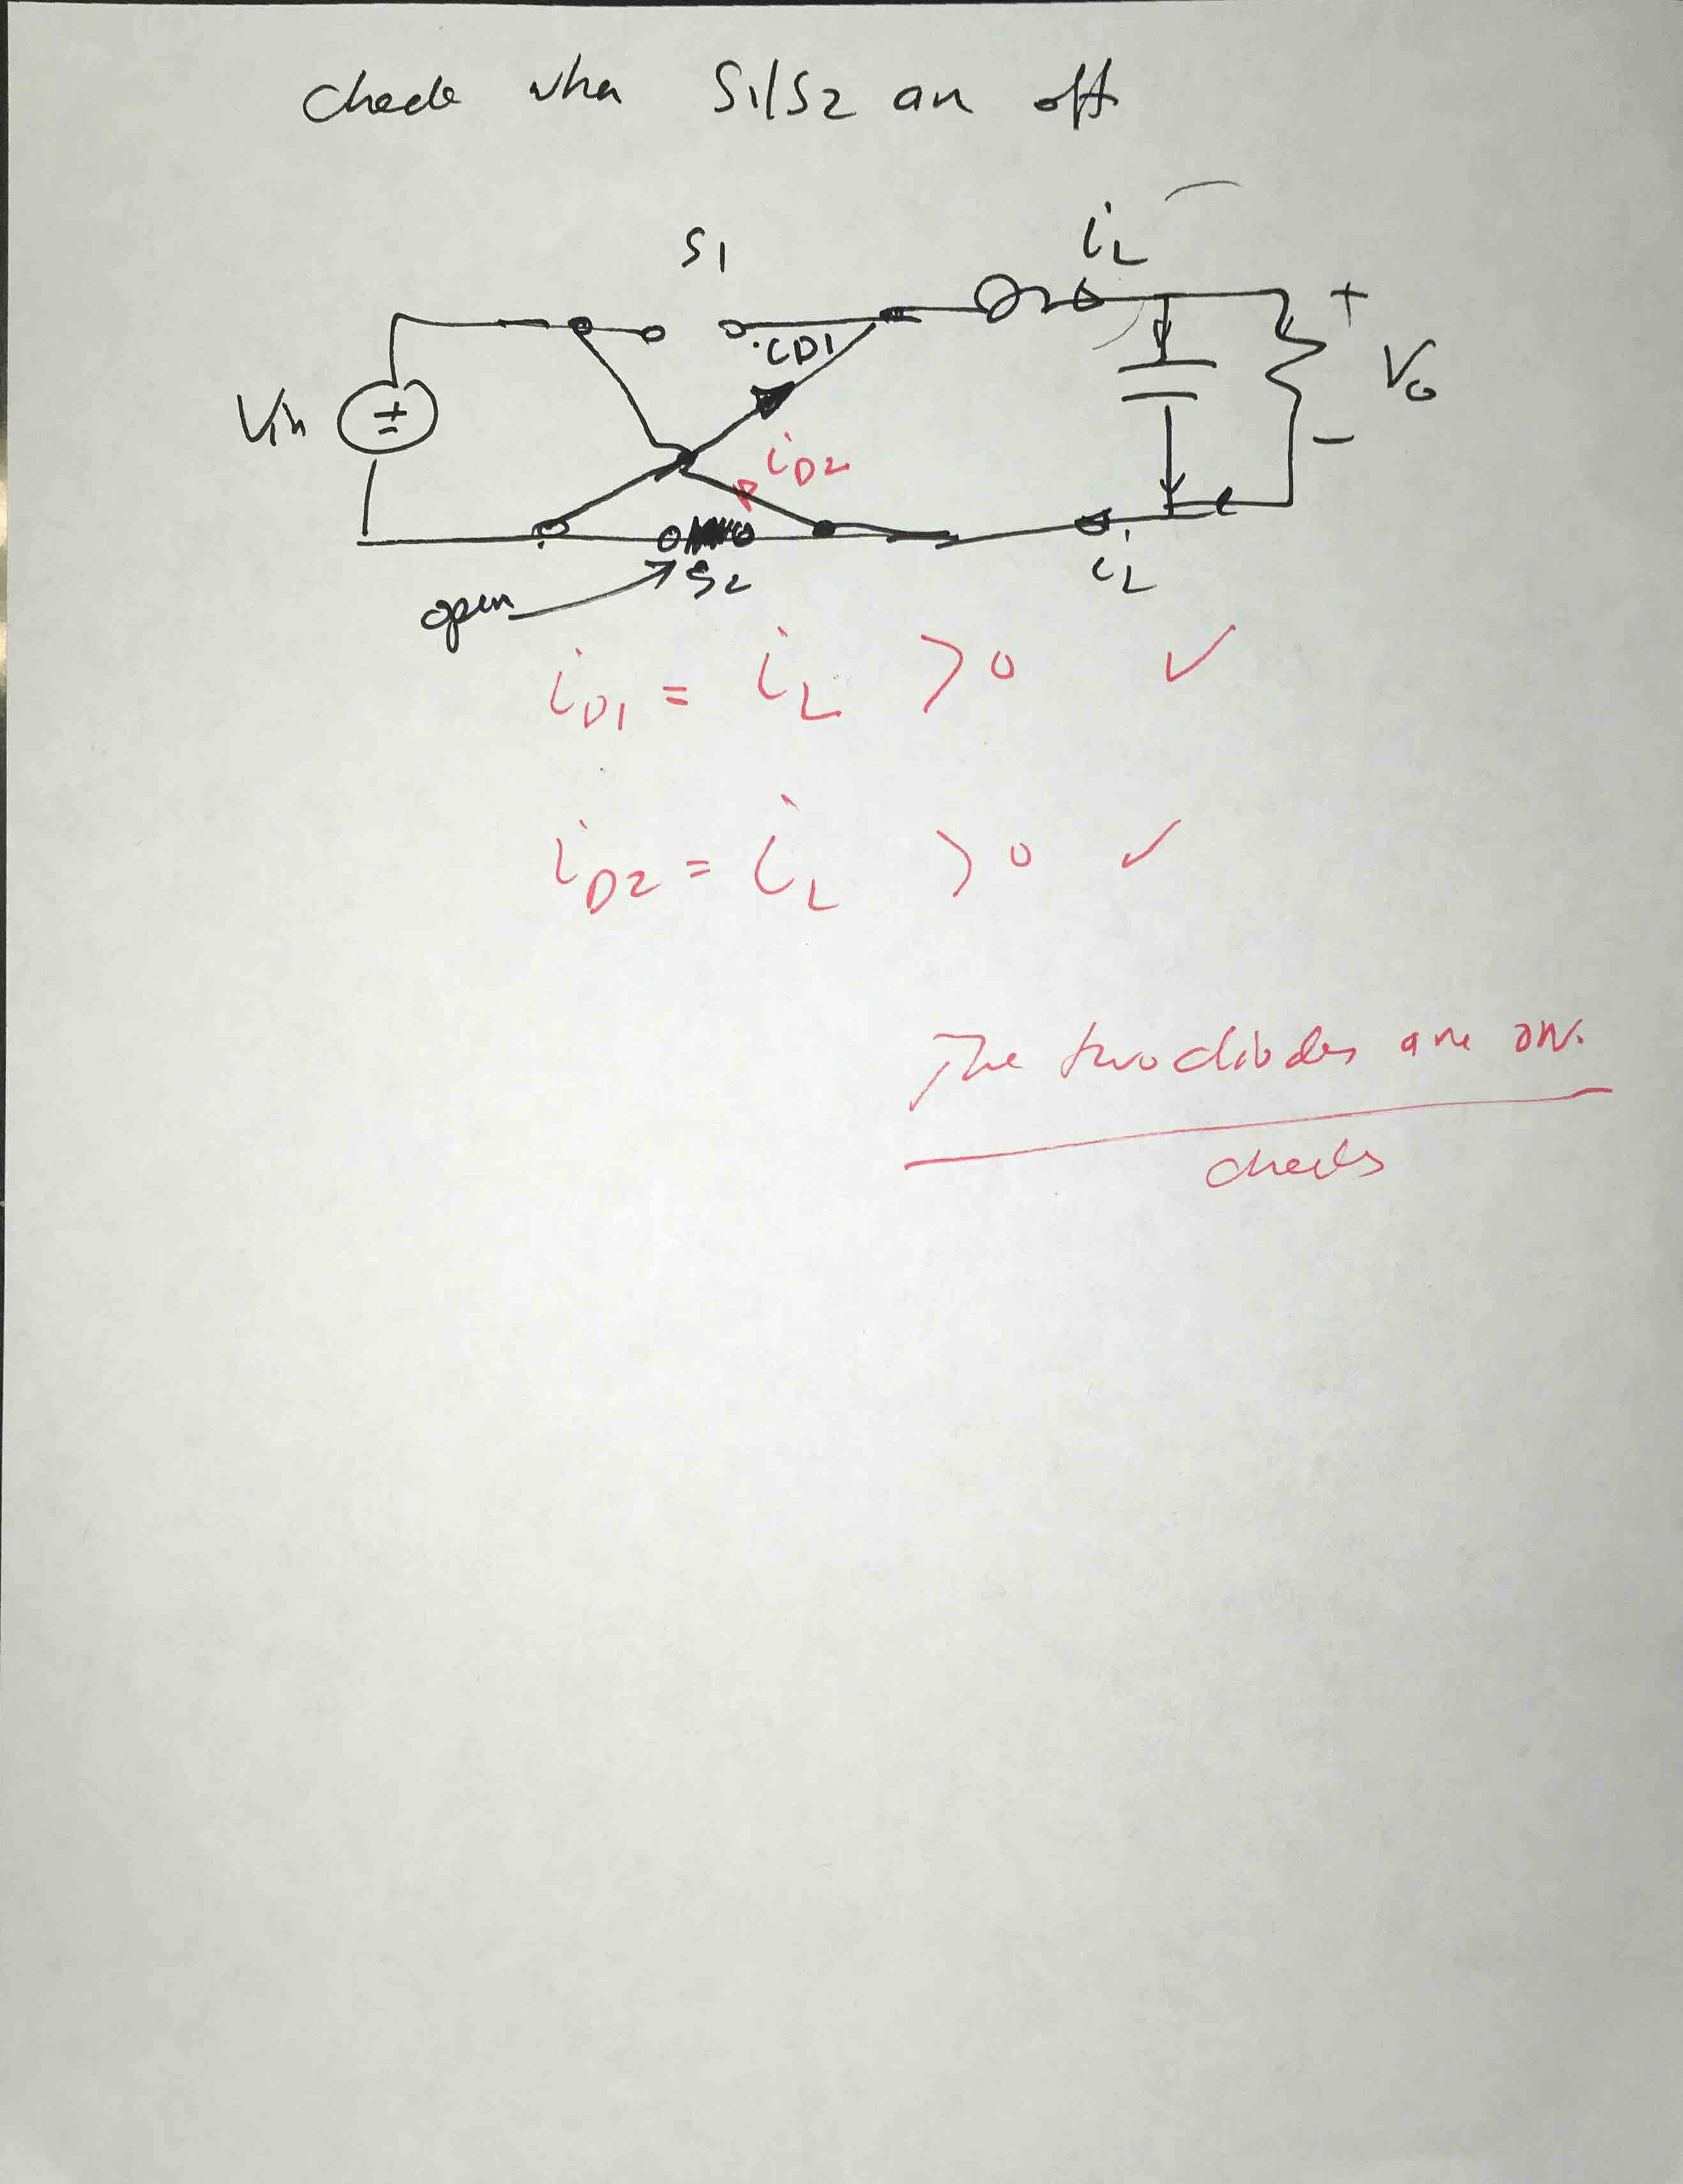 check when S1/S2 are off
S1
iL
iD1
+
Vin
±
Vo
iD2
-
S2
iL
open
iD1 = iL >0 ✓
iD2 = iL >0 ✓
The two diodes are ON.
checks